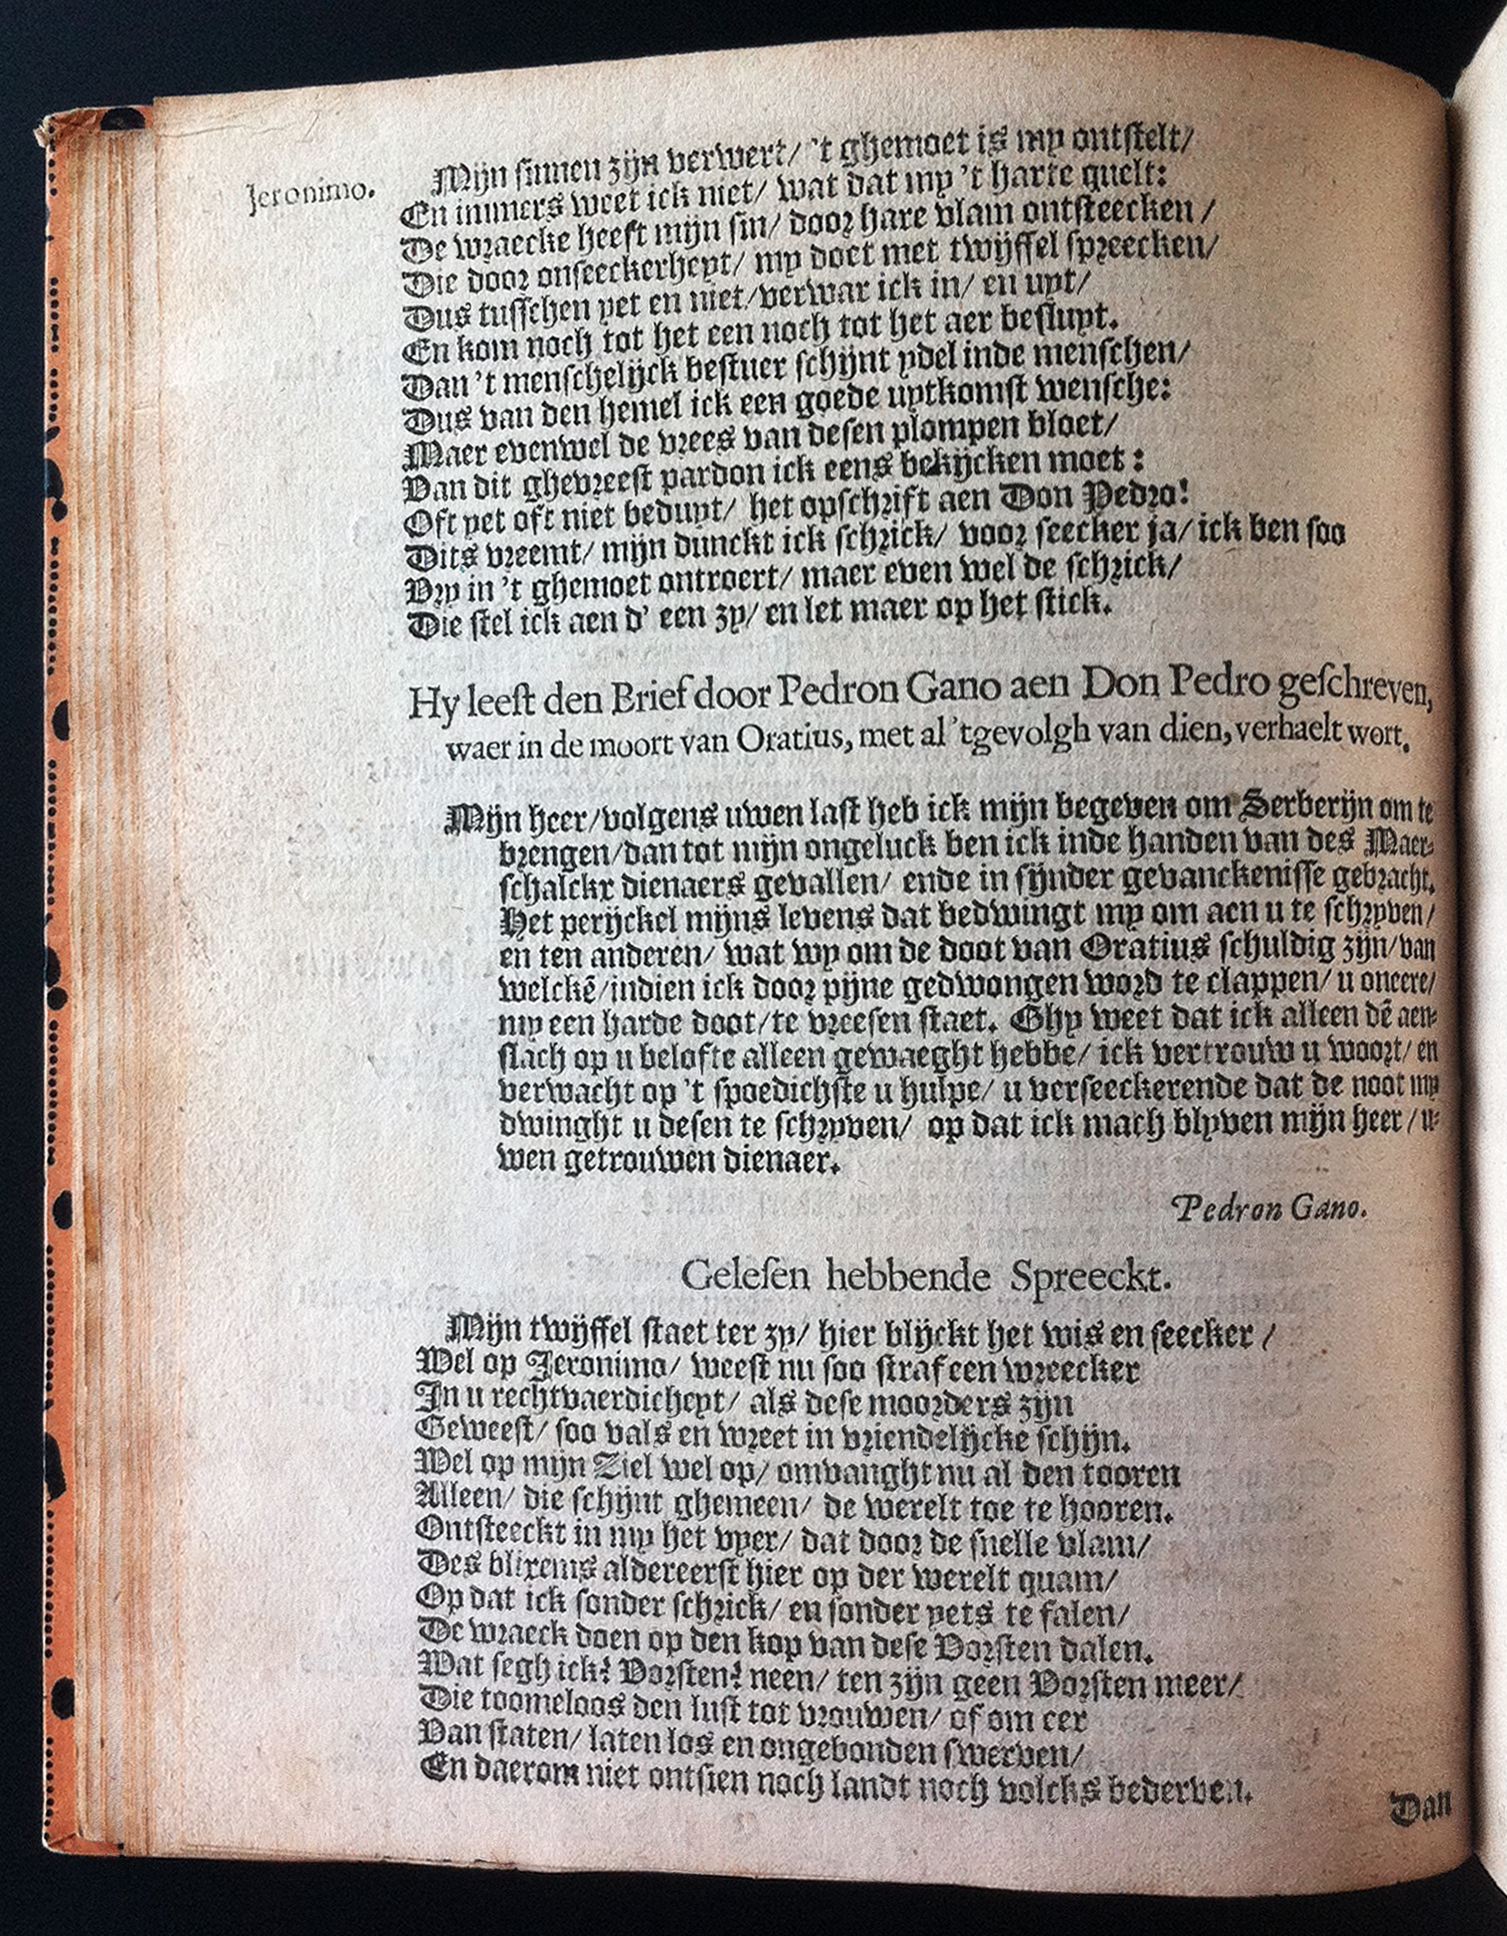 Jeronimo.
Mijn sinnen zijn verwert/ 't ghemoet is my ontstelt/
En immers weet ick niet/ wat dat my 't harte quelt:
De wraecke heeft mijn sin/ door hare vlam ontsteecken/
Die door onseeckerheyt/ my doet met twijffel spreecken/
Dus tusschen yet en niet/ verwar ick in/ en uyt/
En kom noch tot het een noch tot het aer besluyt.
Dan 't menschelijck bestuer schijnt ydel inde menschen/
Dus van den hemel ick een goede uytkomst wensche:
Maer evenwel de vrees van desen plompen bloet/
Van dit ghevreest pardon ick eens bekijcken moet:
Oft yet oft niet beduyt/ het opschrift aen Don Pedro!
Dits vreemt/ mijn dunckt ick schrick/ voor seecker ja/ ick ben soo
Vry in 't ghemoet ontroert/ maer even wel de schrick/
Die stel ick aen d' een zy/ en let maer op het stick.
Hy leest den Brief door Pedron Gano aen Don Pedro geschreven,
waer in de moort van Oratius, met al 'tgevolgh van dien, verhaelt wort.
Mijn heer/ volgens uwen last heb ick mijn begeven om Serberijn om te
brengen/ dan tot mijn ongeluck ben ick inde handen van des Maer-
schalckx dienaers gevallen/ ende in sijnder gevanckenisse gebracht.
Het perijckel mijns levens dat bedwingt my om aen u te schryven/
en ten anderen/ wat wy om de doot van Oratius schuldig zijn/ van
welckē/ indien ick door pijne gedwongen word te clappen/ u oneere/
my een harde doot/ te vreesen staet. Ghy weet dat ick alleen dē aen-
slach op u belofte alleen gewaeght hebbe/ ick vertrouw u woort/ en
verwacht op 't spoedichste u hulpe/ u verseeckerende dat de noot my
dwinght u desen te schryven/ op dat ick mach blyven mijn heer/ u-
wen getrouwen dienaer.
Pedron Gano.
Gelesen hebbende Spreeckt.
Mijn twijffel staet ter zy/ hier blijckt het wis en seecker/
Wel op Jeronimo/ weest nu soo straf een wreecker
In u rechtvaerdicheyt/ als dese moorders zijn
Geweest/ soo vals en wreet in vriendelijcke schijn.
Wel op mijn Ziel wel op/ omvanght nu al den tooren
Alleen/ die schijnt ghemeen/ de werelt toe te hooren.
Ontsteeckt in my het vyer/ dat door de snelle vlam/
Des blixems aldereerst hier op der werelt quam/
Op dat ick sonder schrick/ en sonder yets te falen/
De wraeck doen op den kop van dese Vorsten dalen.
Wat segh ick? Vorsten? neen/ ten zijn geen Vorsten meer/
Die toomeloos den lust tot vrouwen/ of om eer
Van staten/ laten los en ongebonden swerven/
En daerom niet ontsien noch landt noch volcks bederven.
Dan